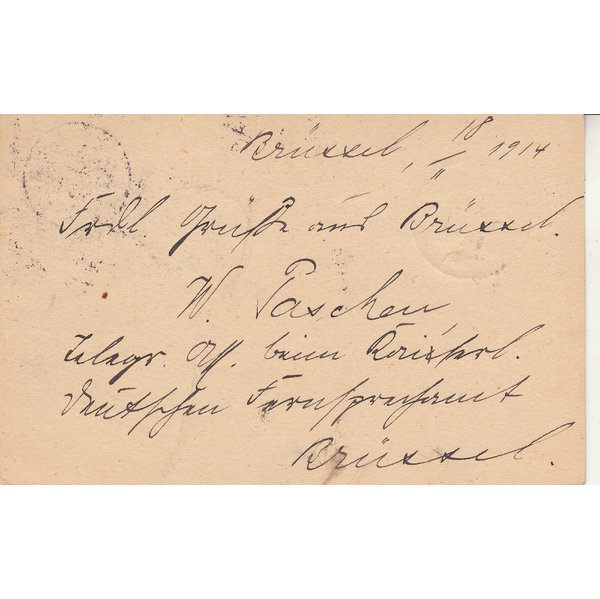 Brüssel, 18/11 1914
Frdl. Grüße aus Brüssel.
W. Paschen,
Telegr. Ass. beim Kaiserl.
deutschen Fernsprechamt
Brüssel.